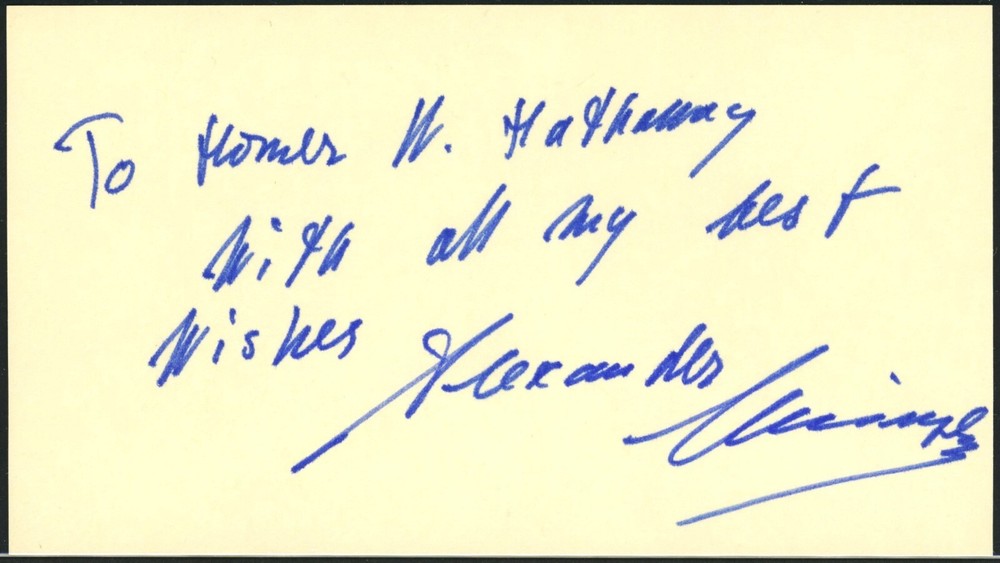 To Homer W. Hathaway
With all my best
Wishes Alexander